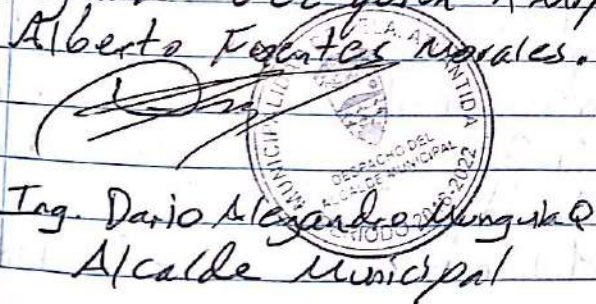 Alberto Fuentes Morales.
MUNICIPALIDAD
ATLANTIDA
DESPACHO DEL
ALCALDE MUNICIPAL
PERIODO 2018-2022
Ing. Dario Alejandro Munguia Q
Alcalde Municipal